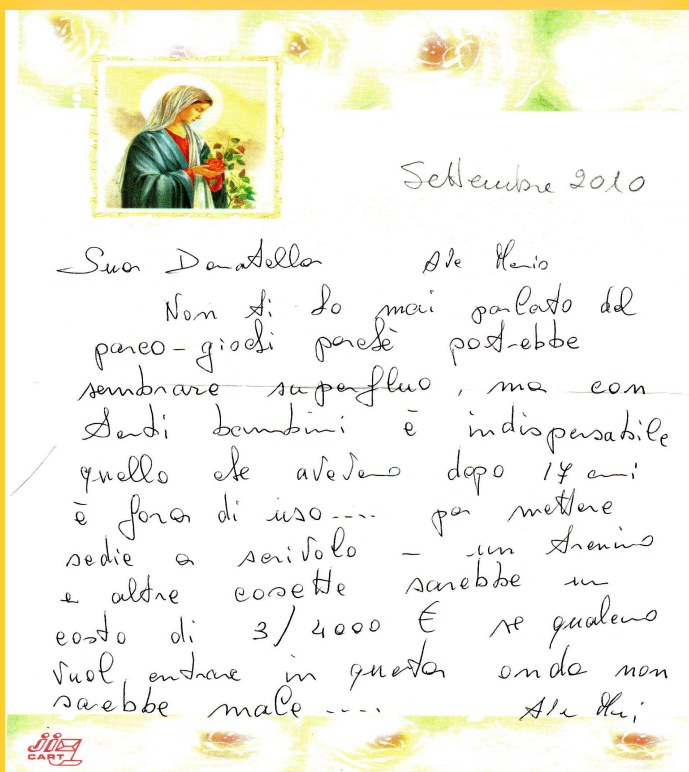 Settembre 2010
Suor Donatella Ave Maria
Non ti ho mai parlato del
parco-giochi perchè potrebbe
sembrare superfluo, ma con
tanti bambini è indispensabile
quello che avevamo dopo 17 anni
è fora di uso.... per mettere
sedie a scivolo - un trenino
e altre cosette sarebbe un
costo di 3/4000 € se qualcuno
vuol entrare in questa onda non
sarebbe male....
JIA
CART